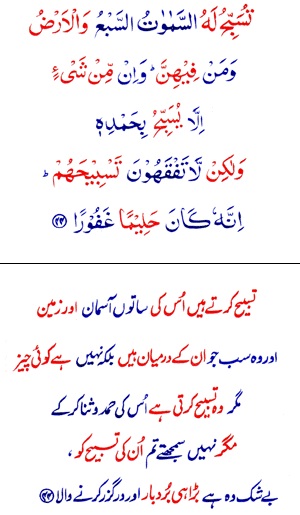 تُسَبِّحُ لَهُ السَّمٰوٰتُ السَّبْعُ وَالْاَرْضُ
وَمَنْ فِيْهِنَّ ؕ وَاِنْ مِّنْ شَیْءٍ
اِلَّا يُسَبِّحُ بِحَمْدِهٖ
وَلٰكِنْ لَّا تَفْقَهُوْنَ تَسْبِيْحَهُمْ ؕ
اِنَّهٗ كَانَ حَلِيْمًا غَفُوْرًا ﴿۴۴﴾
تسبیح کرتے ہیں اُس کی ساتوں آسمان اور زمین
اور وہ سب جو ان کے درمیان ہیں بلکہ نہیں ہے کوئی چیز
مگر وہ تسبیح کرتی ہے اُس کی حمد و ثنا کر کے
مگر نہیں سمجھتے تم اُن کی تسبیح کو ،
بے شک وہ ہے بڑا ہی بُردبار اور درگزر کرنے والا ﴿۴۴﴾